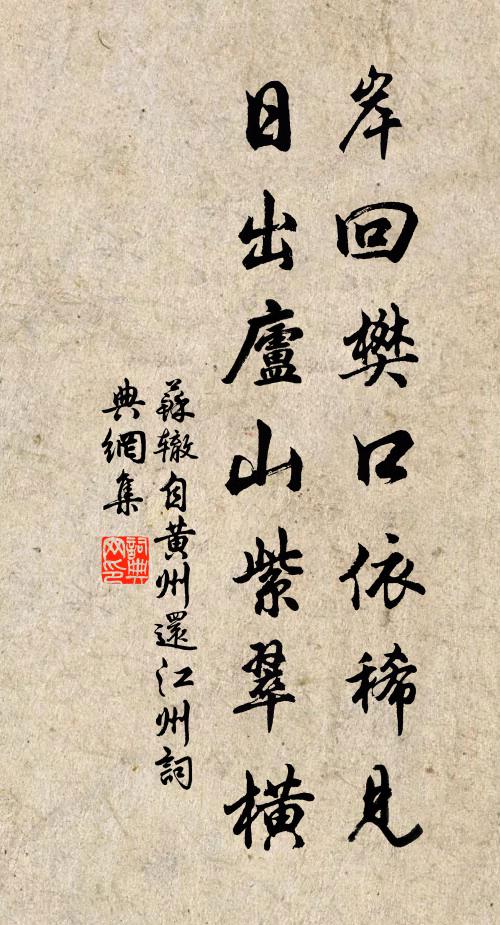 岸回樊口依稀見
日出廬山紫翠橫
蘇轍自黃州還江州詞
典網集
詞典網印